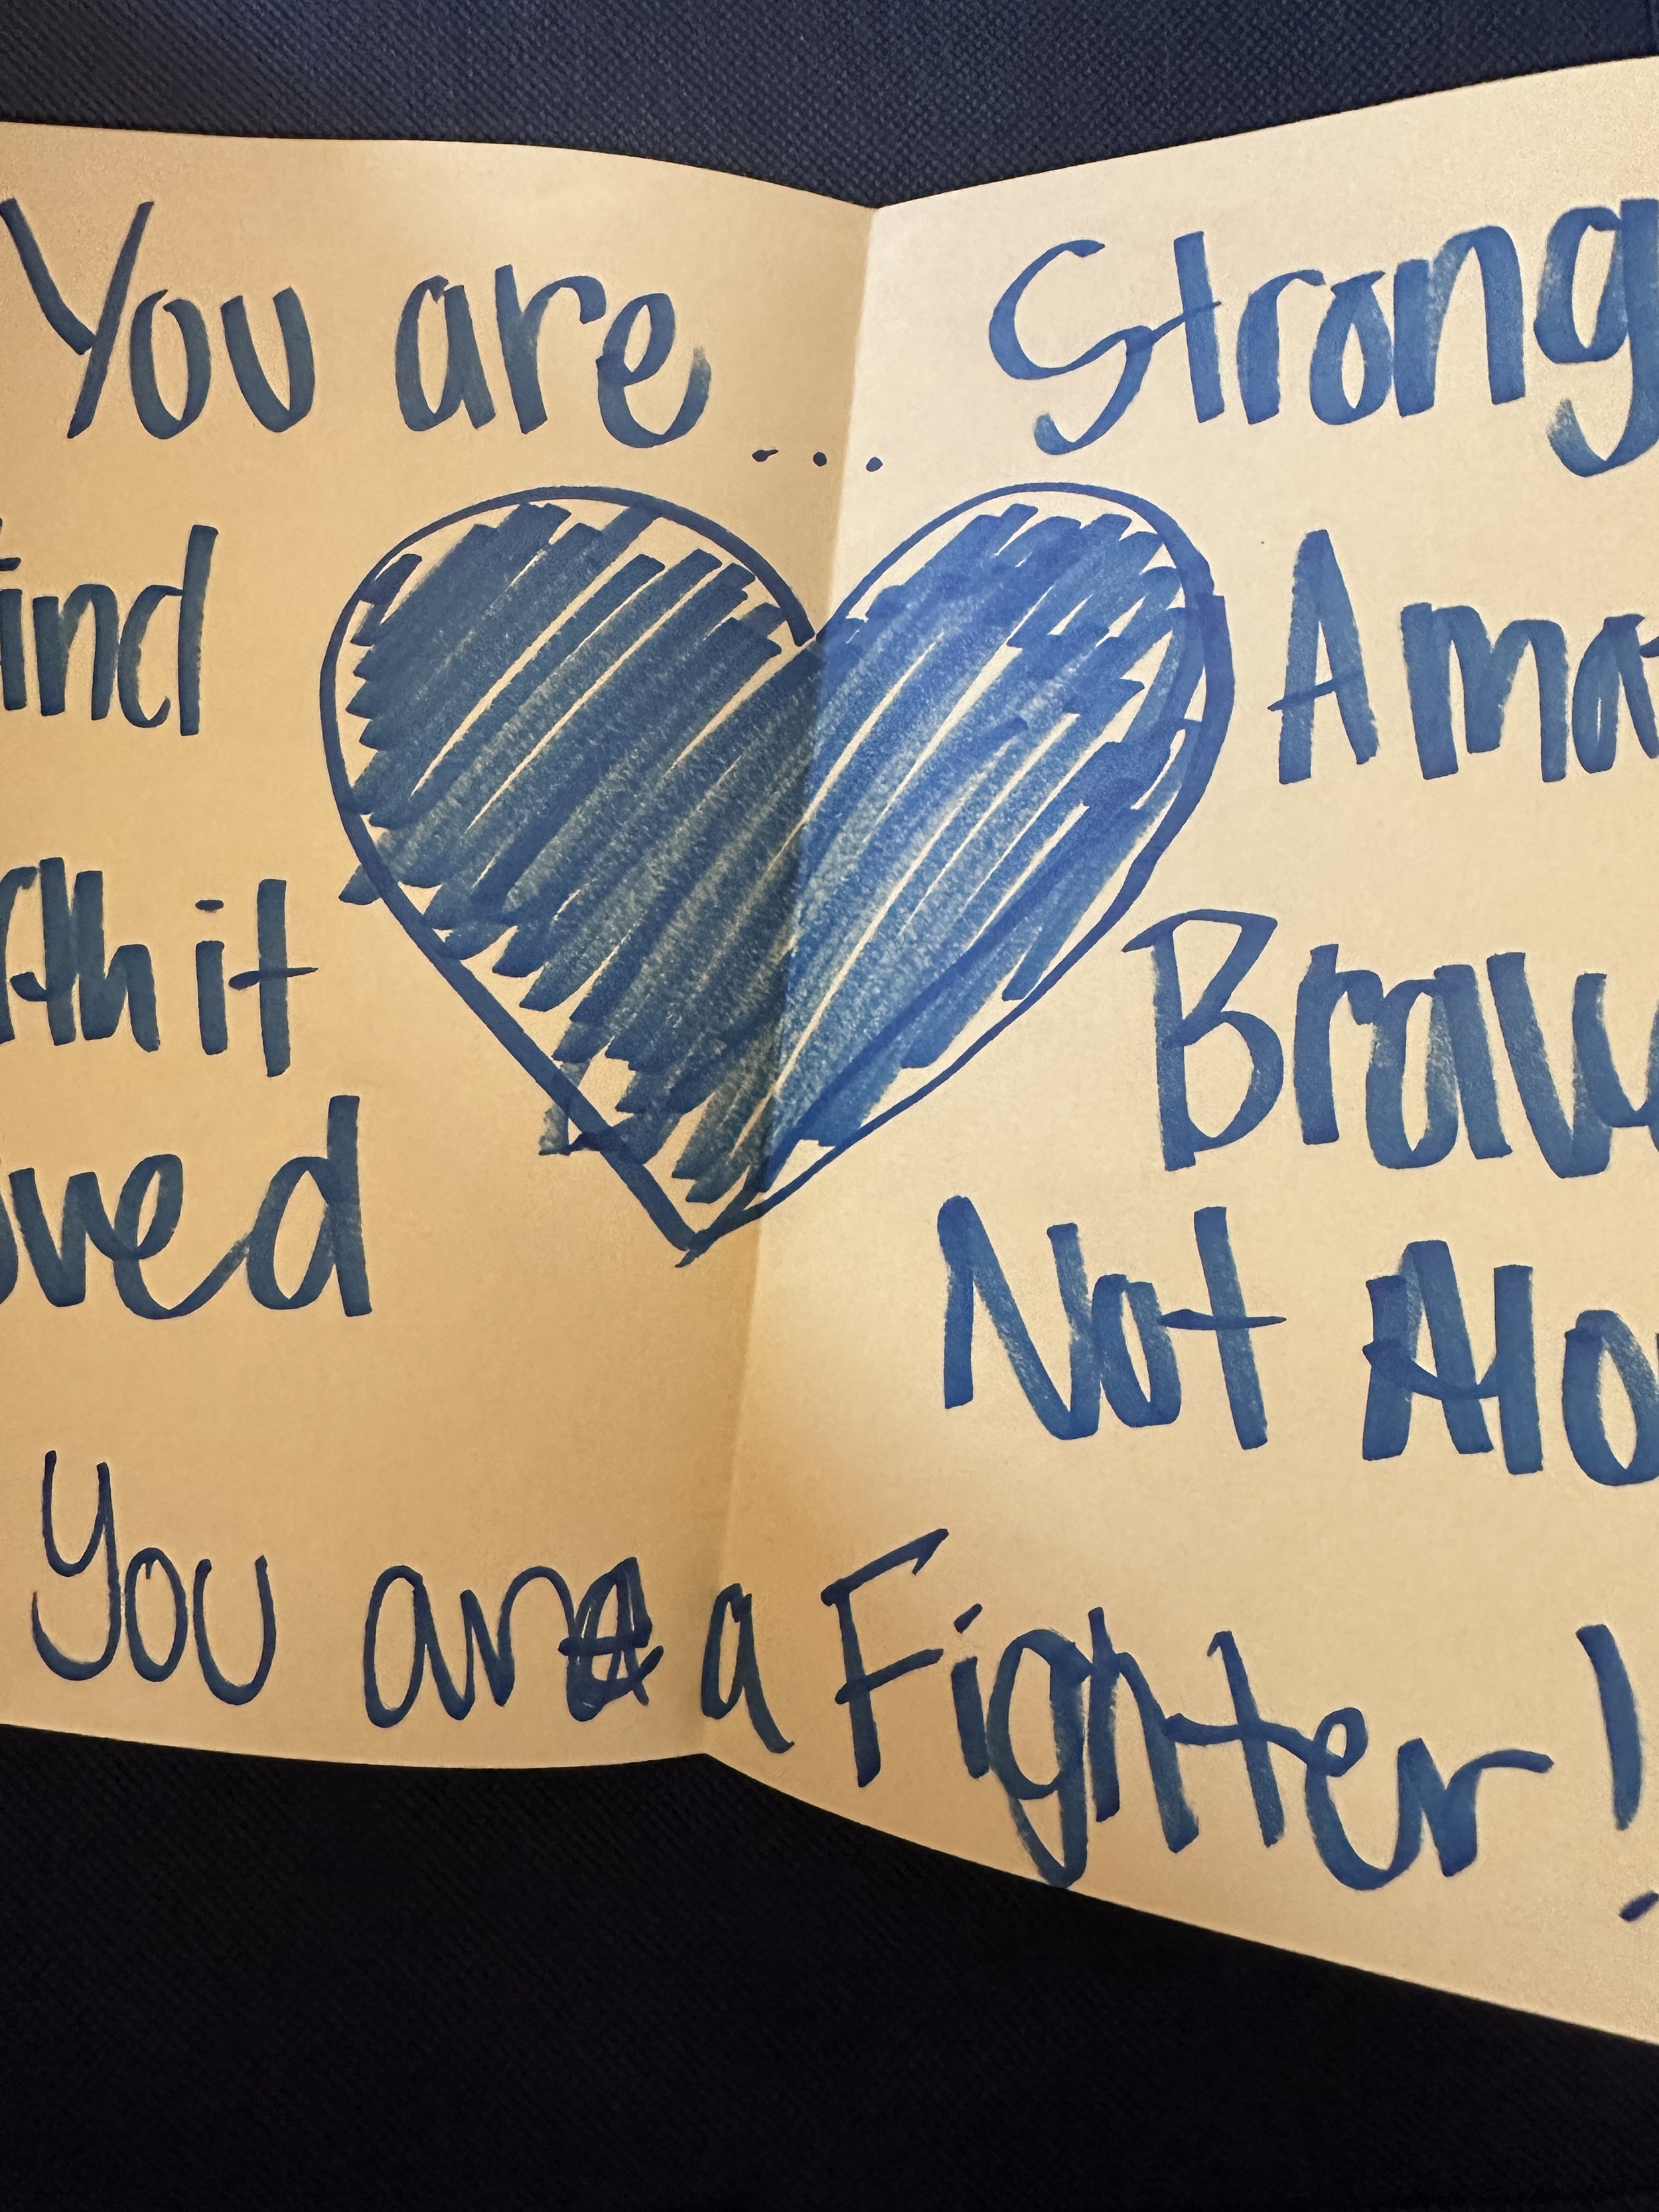 You are... Strong
ind Ama
th it Brave
oved Not Alo
You are a Fighter!